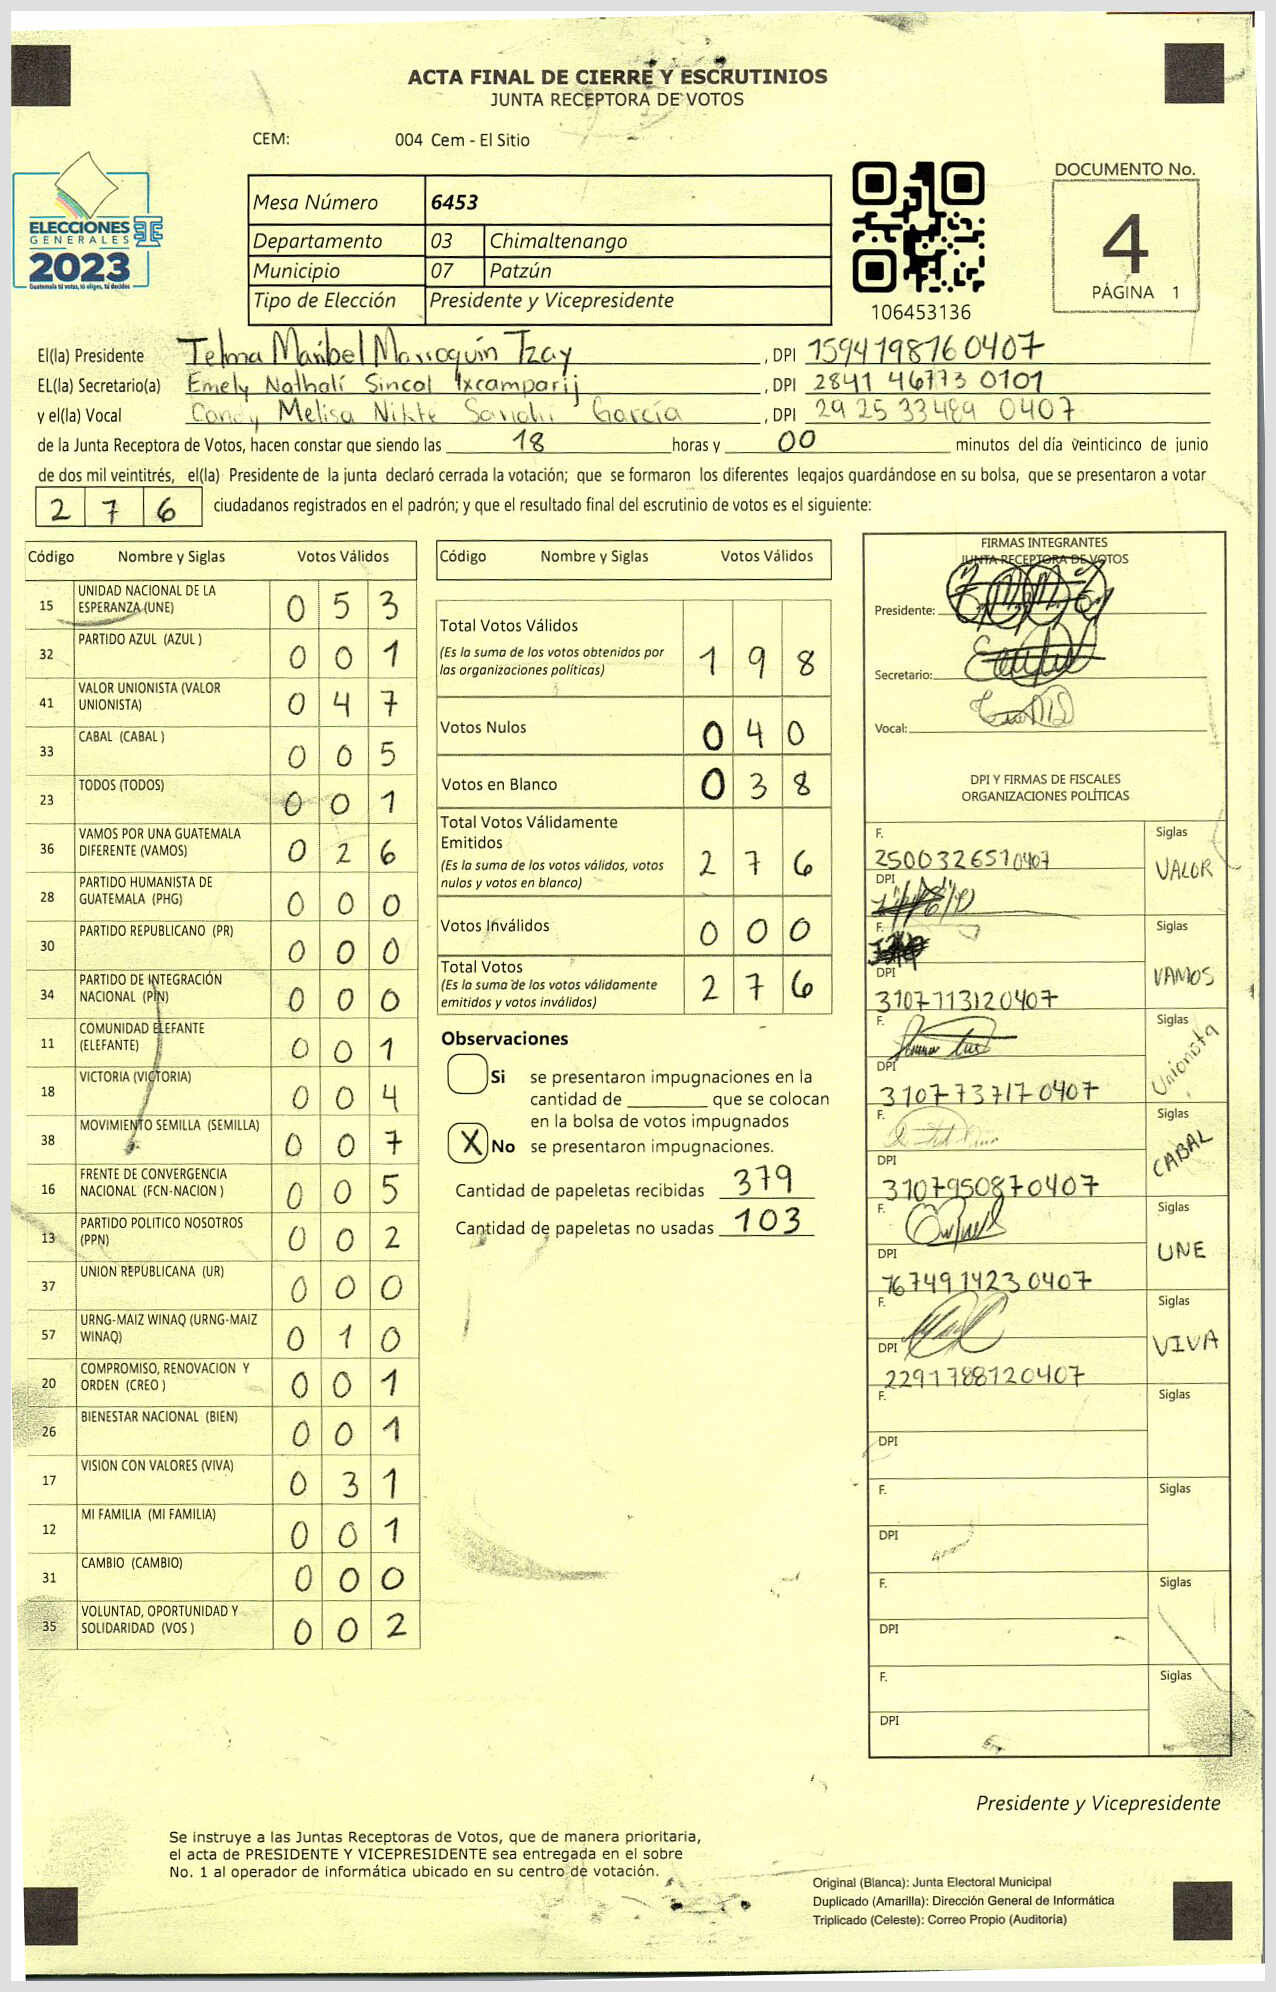 ACTA FINAL DE CIERRE Y ESCRUTINIOS
JUNTA RECEPTORA DE VOTOS
CEM: 004 Cem - El Sitio
ELECCIONES
GENERALES
2023
Guatemala tú votas, tú eliges, tú decides
Mesa Número 6453
Departamento 03 Chimaltenango
Municipio 07 Patzún
Tipo de Elección Presidente y Vicepresidente
106453136
DOCUMENTO No.
4
PÁGINA 1
El(la) Presidente Telma Maribel Marroquín Tzay, DPI 1594198160407
EL(la) Secretario(a) Emely Nathalí Sincal Ixcamparij, DPI 2841 46773 0101
y el(la) Vocal Candy Melisa Nikte Sanchí García, DPI 29 25 33489 0407
de la Junta Receptora de Votos, hacen constar que siendo las 18 horas y 00 minutos del día veinticinco de junio
de dos mil veintitrés, el(la) Presidente de la junta declaró cerrada la votación; que se formaron los diferentes legajos guardándose en su bolsa, que se presentaron a votar
2 7 6 ciudadanos registrados en el padrón; y que el resultado final del escrutinio de votos es el siguiente:
Código Nombre y Siglas Votos Válidos
15 UNIDAD NACIONAL DE LA ESPERANZA (UNE) 0 5 3
32 PARTIDO AZUL (AZUL ) 0 0 1
41 VALOR UNIONISTA (VALOR UNIONISTA) 0 4 7
33 CABAL (CABAL ) 0 0 5
23 TODOS (TODOS) 0 0 1
36 VAMOS POR UNA GUATEMALA DIFERENTE (VAMOS) 0 2 6
28 PARTIDO HUMANISTA DE GUATEMALA (PHG) 0 0 0
30 PARTIDO REPUBLICANO (PR) 0 0 0
34 PARTIDO DE INTEGRACIÓN NACIONAL (PIN) 0 0 0
11 COMUNIDAD ELEFANTE (ELEFANTE) 0 0 1
18 VICTORIA (VICTORIA) 0 0 4
38 MOVIMIENTO SEMILLA (SEMILLA) 0 0 7
16 FRENTE DE CONVERGENCIA NACIONAL (FCN-NACION ) 0 0 5
13 PARTIDO POLITICO NOSOTROS (PPN) 0 0 2
37 UNION REPUBLICANA (UR) 0 0 0
57 URNG-MAIZ WINAQ (URNG-MAIZ WINAQ) 0 1 0
20 COMPROMISO, RENOVACION Y ORDEN (CREO ) 0 0 1
26 BIENESTAR NACIONAL (BIEN) 0 0 1
17 VISION CON VALORES (VIVA) 0 3 1
12 MI FAMILIA (MI FAMILIA) 0 0 1
31 CAMBIO (CAMBIO) 0 0 0
35 VOLUNTAD, OPORTUNIDAD Y SOLIDARIDAD (VOS ) 0 0 2
Código Nombre y Siglas Votos Válidos
Total Votos Válidos 1 9 8
(Es la suma de los votos obtenidos por
las organizaciones políticas)
Votos Nulos 0 4 0
Votos en Blanco 0 3 8
Total Votos Válidamente
Emitidos 2 7 6
(Es la suma de los votos válidos, votos
nulos y votos en blanco)
Votos Inválidos 0 0 0
Total Votos 2 7 6
(Es la suma de los votos válidamente
emitidos y votos inválidos)
Observaciones
Si se presentaron impugnaciones en la
cantidad de ________ que se colocan
en la bolsa de votos impugnados
X No se presentaron impugnaciones.
Cantidad de papeletas recibidas 379
Cantidad de papeletas no usadas 103
FIRMAS INTEGRANTES
JUNTA RECEPTORA DE VOTOS
Presidente:
Secretario:
Vocal:
DPI Y FIRMAS DE FISCALES
ORGANIZACIONES POLÍTICAS
F. Siglas
2500326510407 VALOR
DPI
F. Siglas
DPI VAMOS
3107113120407
F. Siglas
DPI Unionista
3107737170407
F. Siglas
DPI CABAL
3107950870407
F. Siglas
DPI UNE
1674914230407
F. Siglas
DPI VIVA
2291788120407
F. Siglas
DPI
F. Siglas
DPI
F. Siglas
DPI
F. Siglas
DPI
Presidente y Vicepresidente
Se instruye a las Juntas Receptoras de Votos, que de manera prioritaria,
el acta de PRESIDENTE Y VICEPRESIDENTE sea entregada en el sobre
No. 1 al operador de informática ubicado en su centro de votación.
Original (Blanca): Junta Electoral Municipal
Duplicado (Amarilla): Dirección General de Informática
Triplicado (Celeste): Correo Propio (Auditoría)